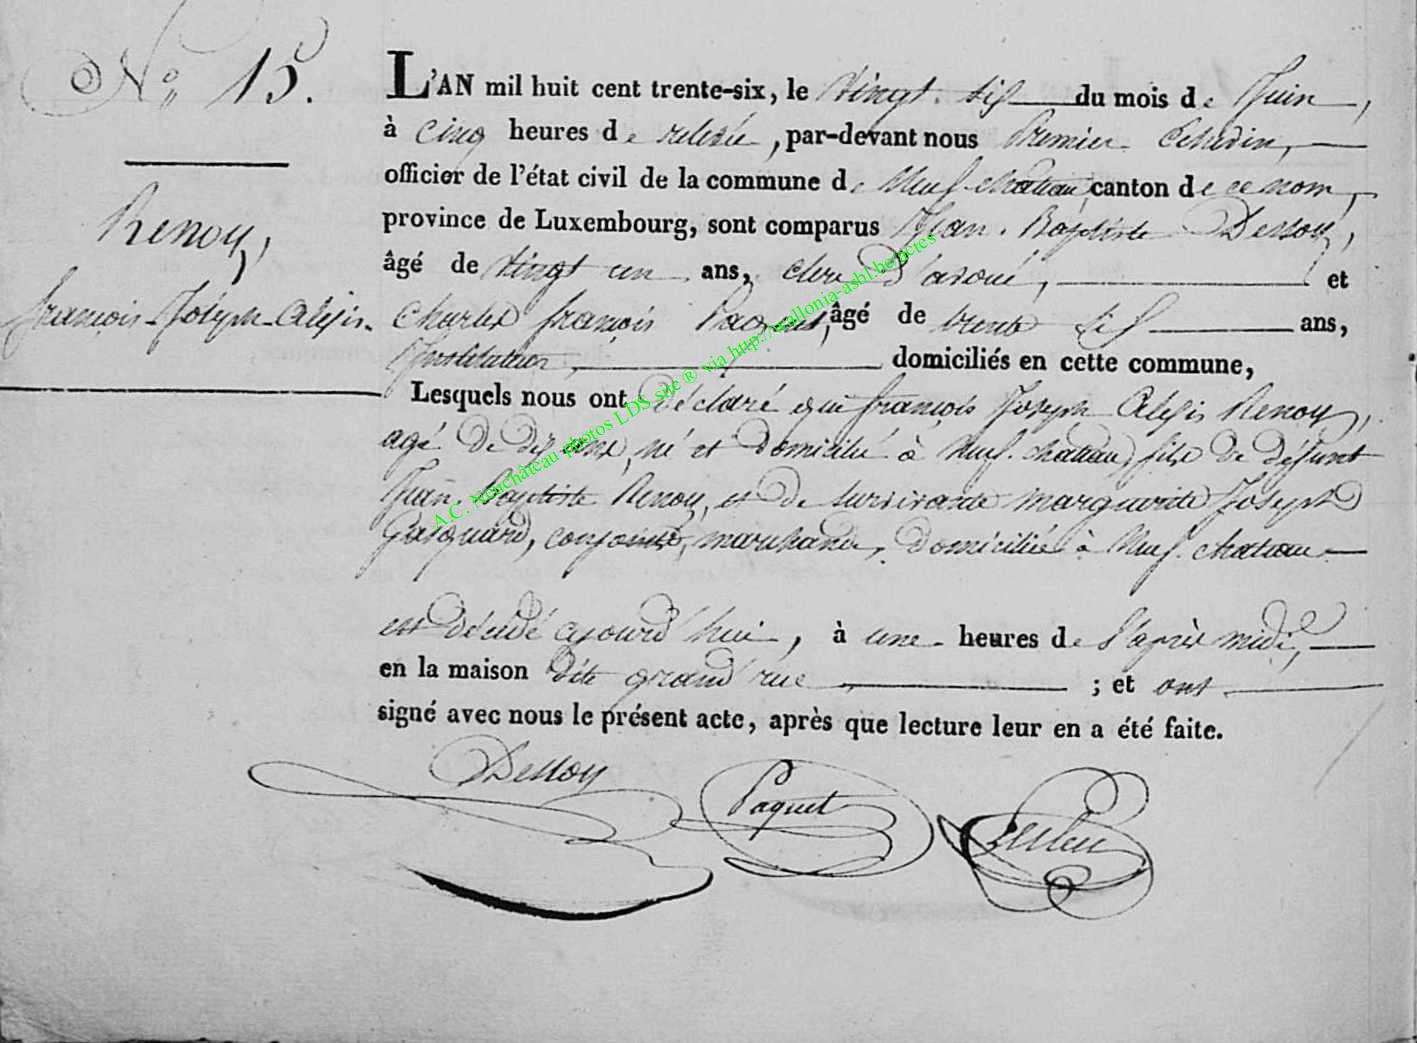 N° 15.
L'AN mil huit cent trente-six, le vingt six du mois de Juin,
à cinq heures de relevée, par-devant nous Premier Echevin,
officier de l'état civil de la commune de Neufchateau, canton de ce nom,
Renoy,
province de Luxembourg, sont comparus Jean Baptiste Dessoy,
âgé de vingt un ans, clerc d'avoué, et
françois Joseph Alexis.
Charles françois Paquet, âgé de trente six ans,
Instituteur, domiciliés en cette commune,
Lesquels nous ont déclaré que françois Joseph Alexis Renoy,
agé de dix ans, né et domicilié à Neufchateau, fils de défunt
Jean Baptiste Renoy, et de survivante marguerite Joseph
Gasquard, conjoints, marchande, domiciliée à Neufchateau
est décédé ajourd'hui, à une heures de l'après midi,
en la maison dite grand rue ; et ont
signé avec nous le présent acte, après que lecture leur en a été faite.
Dessoy Paquet
A.C. Neuchâteau photos LDS site ® via http://wallonia-asbl.be/actes